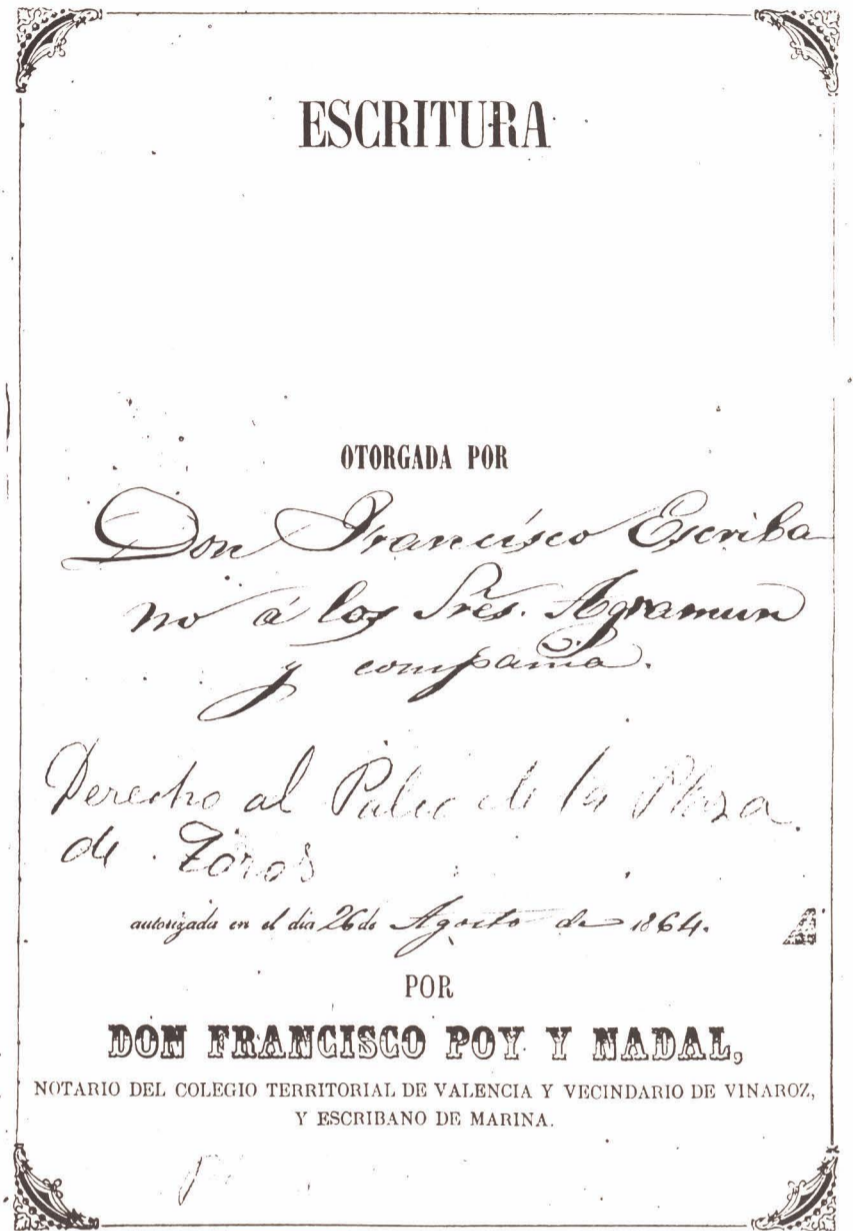 ESCRITURA
OTORGADA POR
Don Francisco Escriba
no á los Sres. Agramun
y compañia.
Derecho al Palco de la Plaza
de Toros
autorizada en el dia 26 de Agosto de 1864.
POR
DON FRANCISCO POY Y NADAL,
NOTARIO DEL COLEGIO TERRITORIAL DE VALENCIA Y VECINDARIO DE VINAROZ,
Y ESCRIBANO DE MARINA.